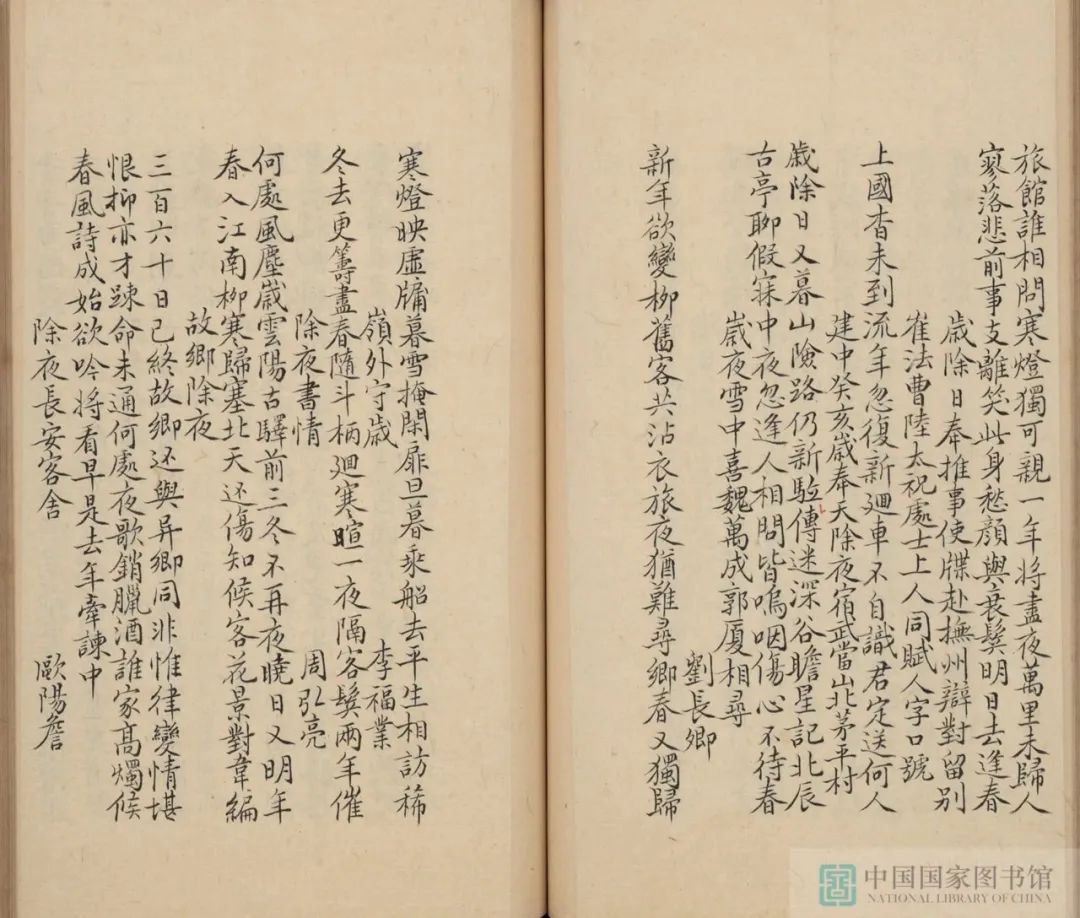 旅館誰相問寒燈獨可親一年將盡夜萬里未歸人
寥落悲前事支離笑此身愁顏與衰鬢明日去逢春
歲除日奉推事使牒赴撫州辯對留别
崔法曹陸太祝處士上人同賦人字口號
上國杳未到流年忽復新廻車不自識君定送何人
建中癸亥歲奉天除夜宿武當山北茅平村
歲除日又暮山險路仍新驅傳迷深谷瞻星記北辰
古亭聊假寐中夜忽逢人相問皆嗚咽傷心不待春
歲夜雪中喜魏萬成郭厦相尋
劉長卿
新年欲變柳舊客共沾衣旅夜猶難尋鄉春又獨歸
寒燈映虛牖暮雪掩閑扉旦暮乘船去平生相訪稀
嶺外守歲 李福業
冬去更籌盡春隨斗柄廻寒暄一夜隔客鬢兩年催
除夜書情 周弘亮
何處風塵歲雲陽古驛前三冬不再夜曉日又明年
春入江南柳寒歸塞北天还傷知候客花景對韋編
故鄉除夜
三百六十日已終故鄉还與异鄉同非惟律變情堪
恨抑亦才踈命未通何處夜歌銷臘酒誰家高燭候
春風詩成始欲吟將看早是去年牽諫中
除夜長安客舍 歐陽詹
中国国家图书馆
NATIONAL LIBRARY OF CHINA